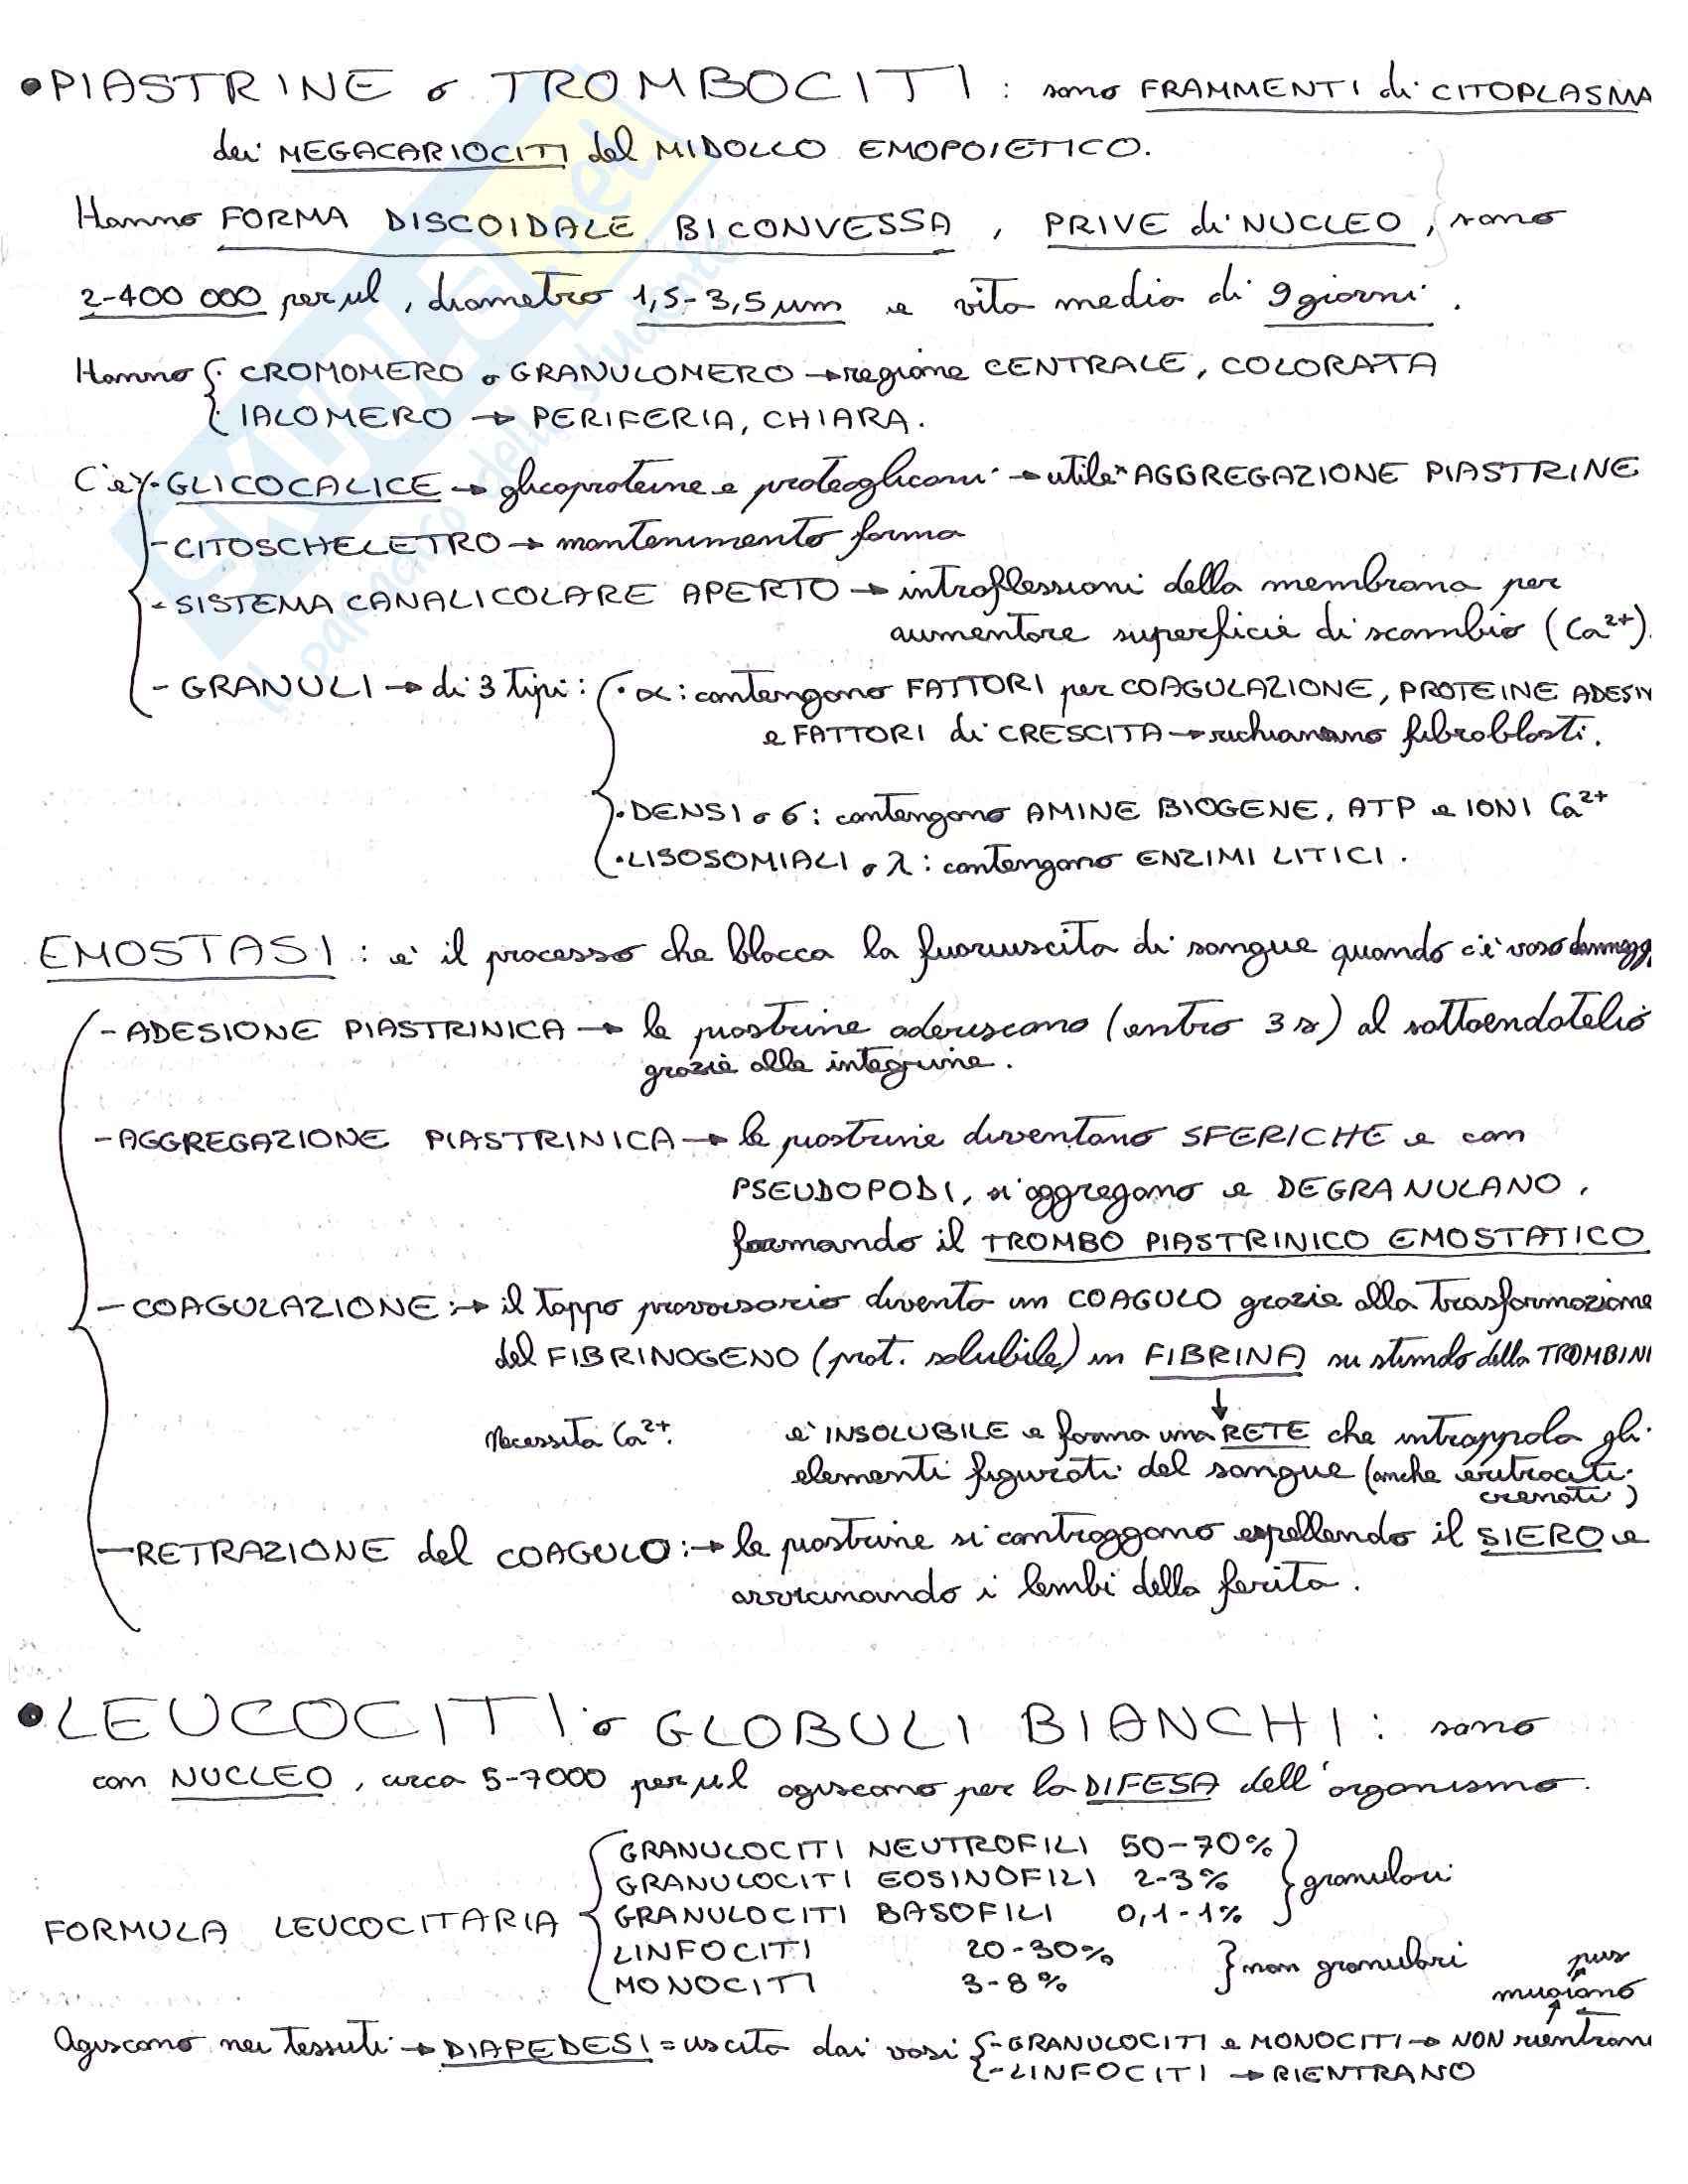 •PIASTRINE o TROMBOCITI : sono FRAMMENTI di CITOPLASMA
dei MEGACARIOCITI del MIDOLLO EMOPOIETICO.
Hanno FORMA DISCOIDALE BICONVESSA, PRIVE di NUCLEO, sono
2-400 000 per μl, diametro 1,5-3,5 μm e vita media di 9 giorni.
Hanno { · CROMOMERO o GRANULOMERO → regione CENTRALE, COLORATA
· IALOMERO → PERIFERIA, CHIARA.
C'è - GLICOCALICE → glicoproteine e proteoglicani → utile x AGGREGAZIONE PIASTRINE
- CITOSCHELETRO → mantenimento forma
- SISTEMA CANALICOLARE APERTO → introflessioni della membrana per
aumentare superficie di scambio (Ca²⁺).
- GRANULI → di 3 tipi : { · α : contengono FATTORI per COAGULAZIONE, PROTEINE ADESIV
e FATTORI di CRESCITA → richiamano fibroblasti.
· DENSI o δ : contengono AMINE BIOGENE, ATP e IONI Ca²⁺
· LISOSOMIALI o λ : contengono ENZIMI LITICI.
EMOSTASI : è il processo che blocca la fuoriuscita di sangue quando c'è vaso dannegg
- ADESIONE PIASTRINICA → le piastrine aderiscono (entro 3 s) al sottoendotelio
grazie alle integrine.
- AGGREGAZIONE PIASTRINICA → le piastrine diventano SFERICHE e con
PSEUDOPODI, si aggregano e DEGRANULANO,
formando il TROMBO PIASTRINICO EMOSTATICO
- COAGULAZIONE : → il tappo provvisorio diventa un COAGULO grazie alla trasformazione
del FIBRINOGENO (prot. solubile) in FIBRINA su stimolo della TROMBIN
Necessita Ca²⁺. è INSOLUBILE e forma una RETE che intrappola gli
elementi figurati del sangue (anche eritrociti
crenati)
- RETRAZIONE del COAGULO : → le piastrine si contraggono espellendo il SIERO e
avvicinando i lembi della ferita.
•LEUCOCITI o GLOBULI BIANCHI : sono
con NUCLEO, circa 5-7000 per μl agiscono per la DIFESA dell'organismo.
GRANULOCITI NEUTROFILI 50-70%
GRANULOCITI EOSINOFILI 2-3% } granulari
FORMULA LEUCOCITARIA { GRANULOCITI BASOFILI 0,1-1%
LINFOCITI 20-30% } non granulari pus
MONOCITI 3-8% muoiono
Agiscono nei tessuti → DIAPEDESI = uscita dai vasi { - GRANULOCITI e MONOCITI → NON rientran
- LINFOCITI → RIENTRANO
SKUOLA.net
il paradiso dello studente